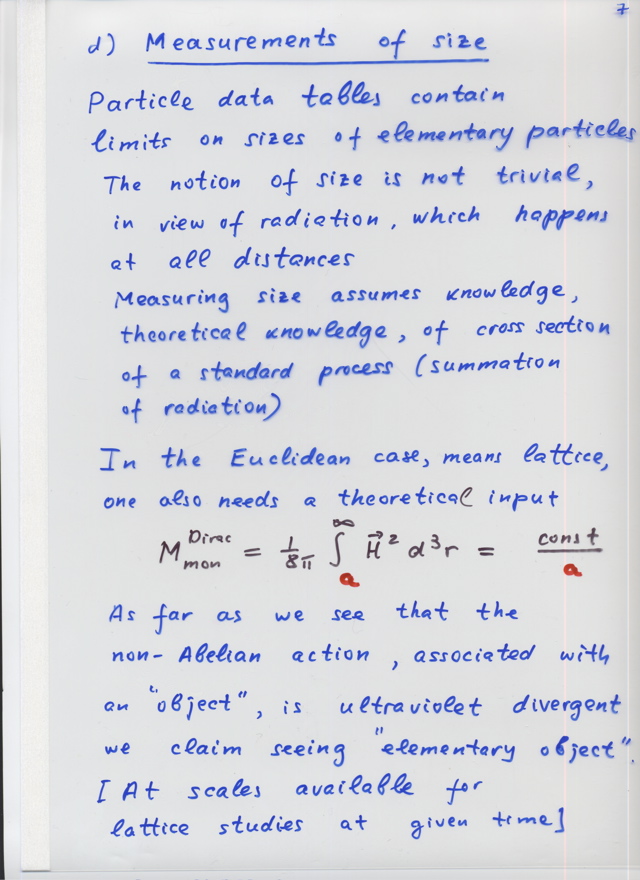 7
d) Measurements of size
Particle data tables contain
limits on sizes of elementary particles
The notion of size is not trivial,
in view of radiation, which happens
at all distances
Measuring size assumes knowledge,
theoretical knowledge, of cross section
of a standard process (summation
of radiation)
In the Euclidean case, means lattice,
one also needs a theoretical input
M_{mon}^{Dirac} = \frac{1}{8\pi} \int_a^\infty \vec{H}^2 d^3r = \frac{const}{a}
As far as we see that the
non-Abelian action, associated with
an "object", is ultraviolet divergent
we claim seeing "elementary object".
[At scales available for
lattice studies at given time]